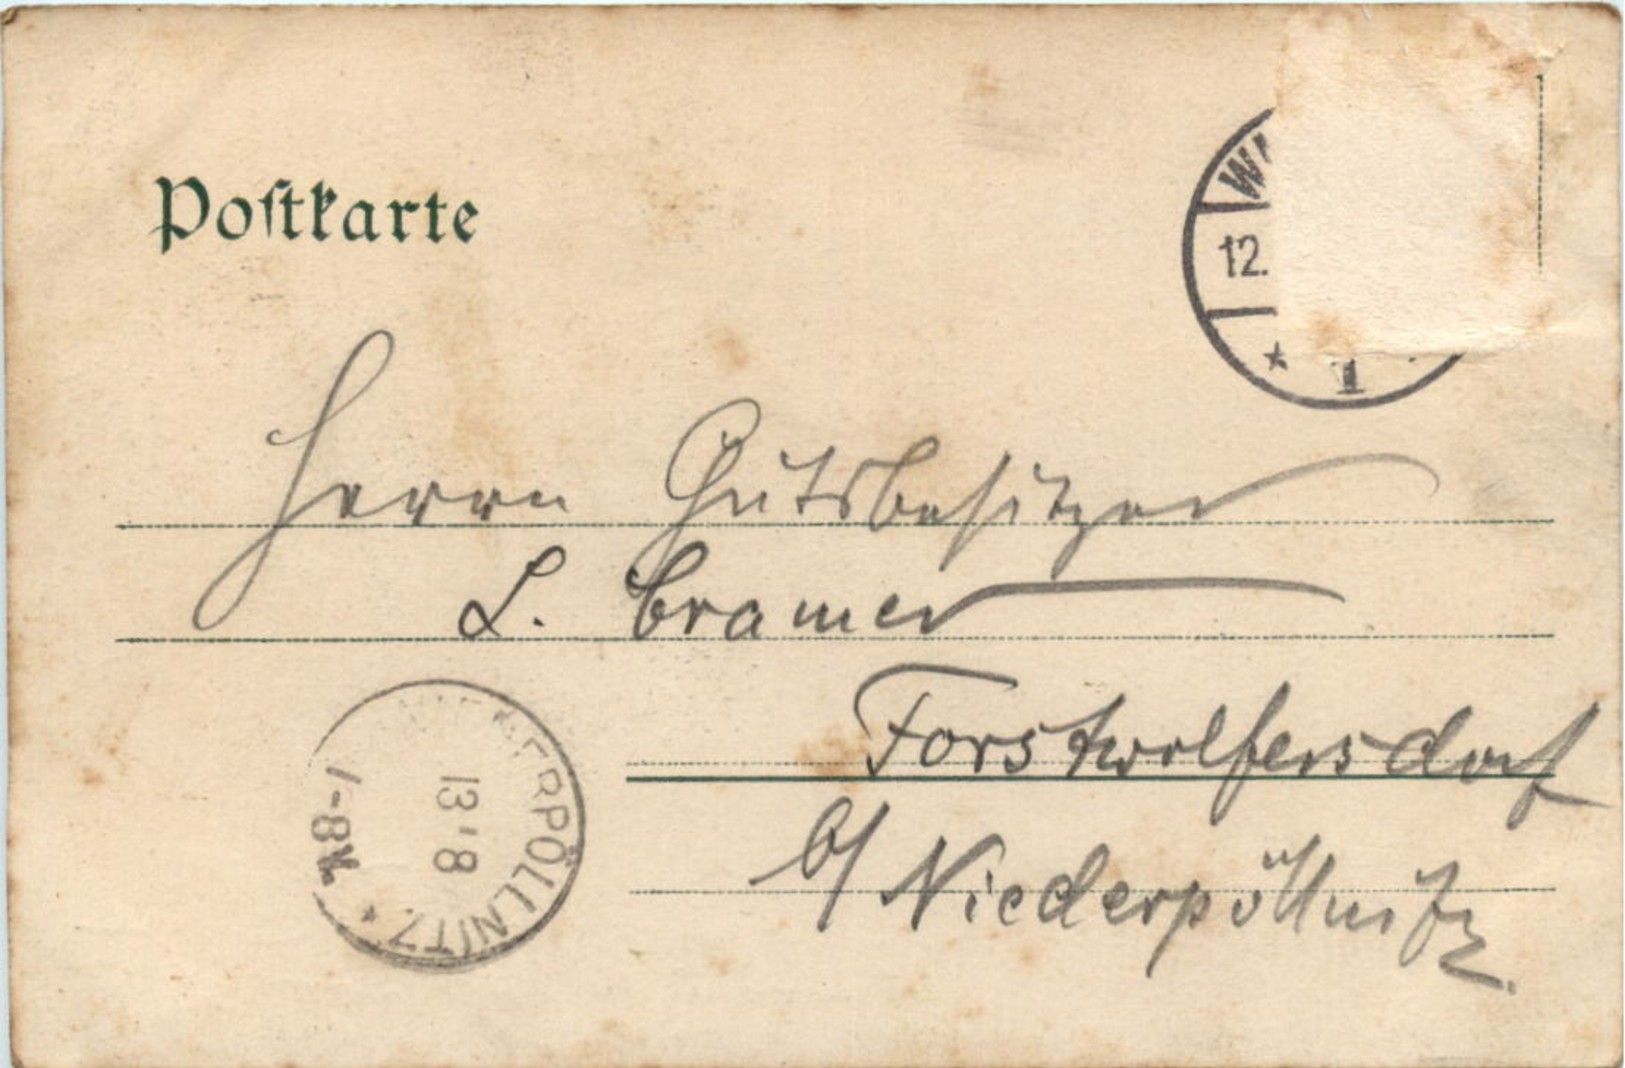 Postkarte
12.
1
Herrn Gutsbesitzer
L. Cramer
Forstwolfersdorf
b/ Niederpöllnitz.
NIEDERPÖLLNITZ
13 8
7-8V.